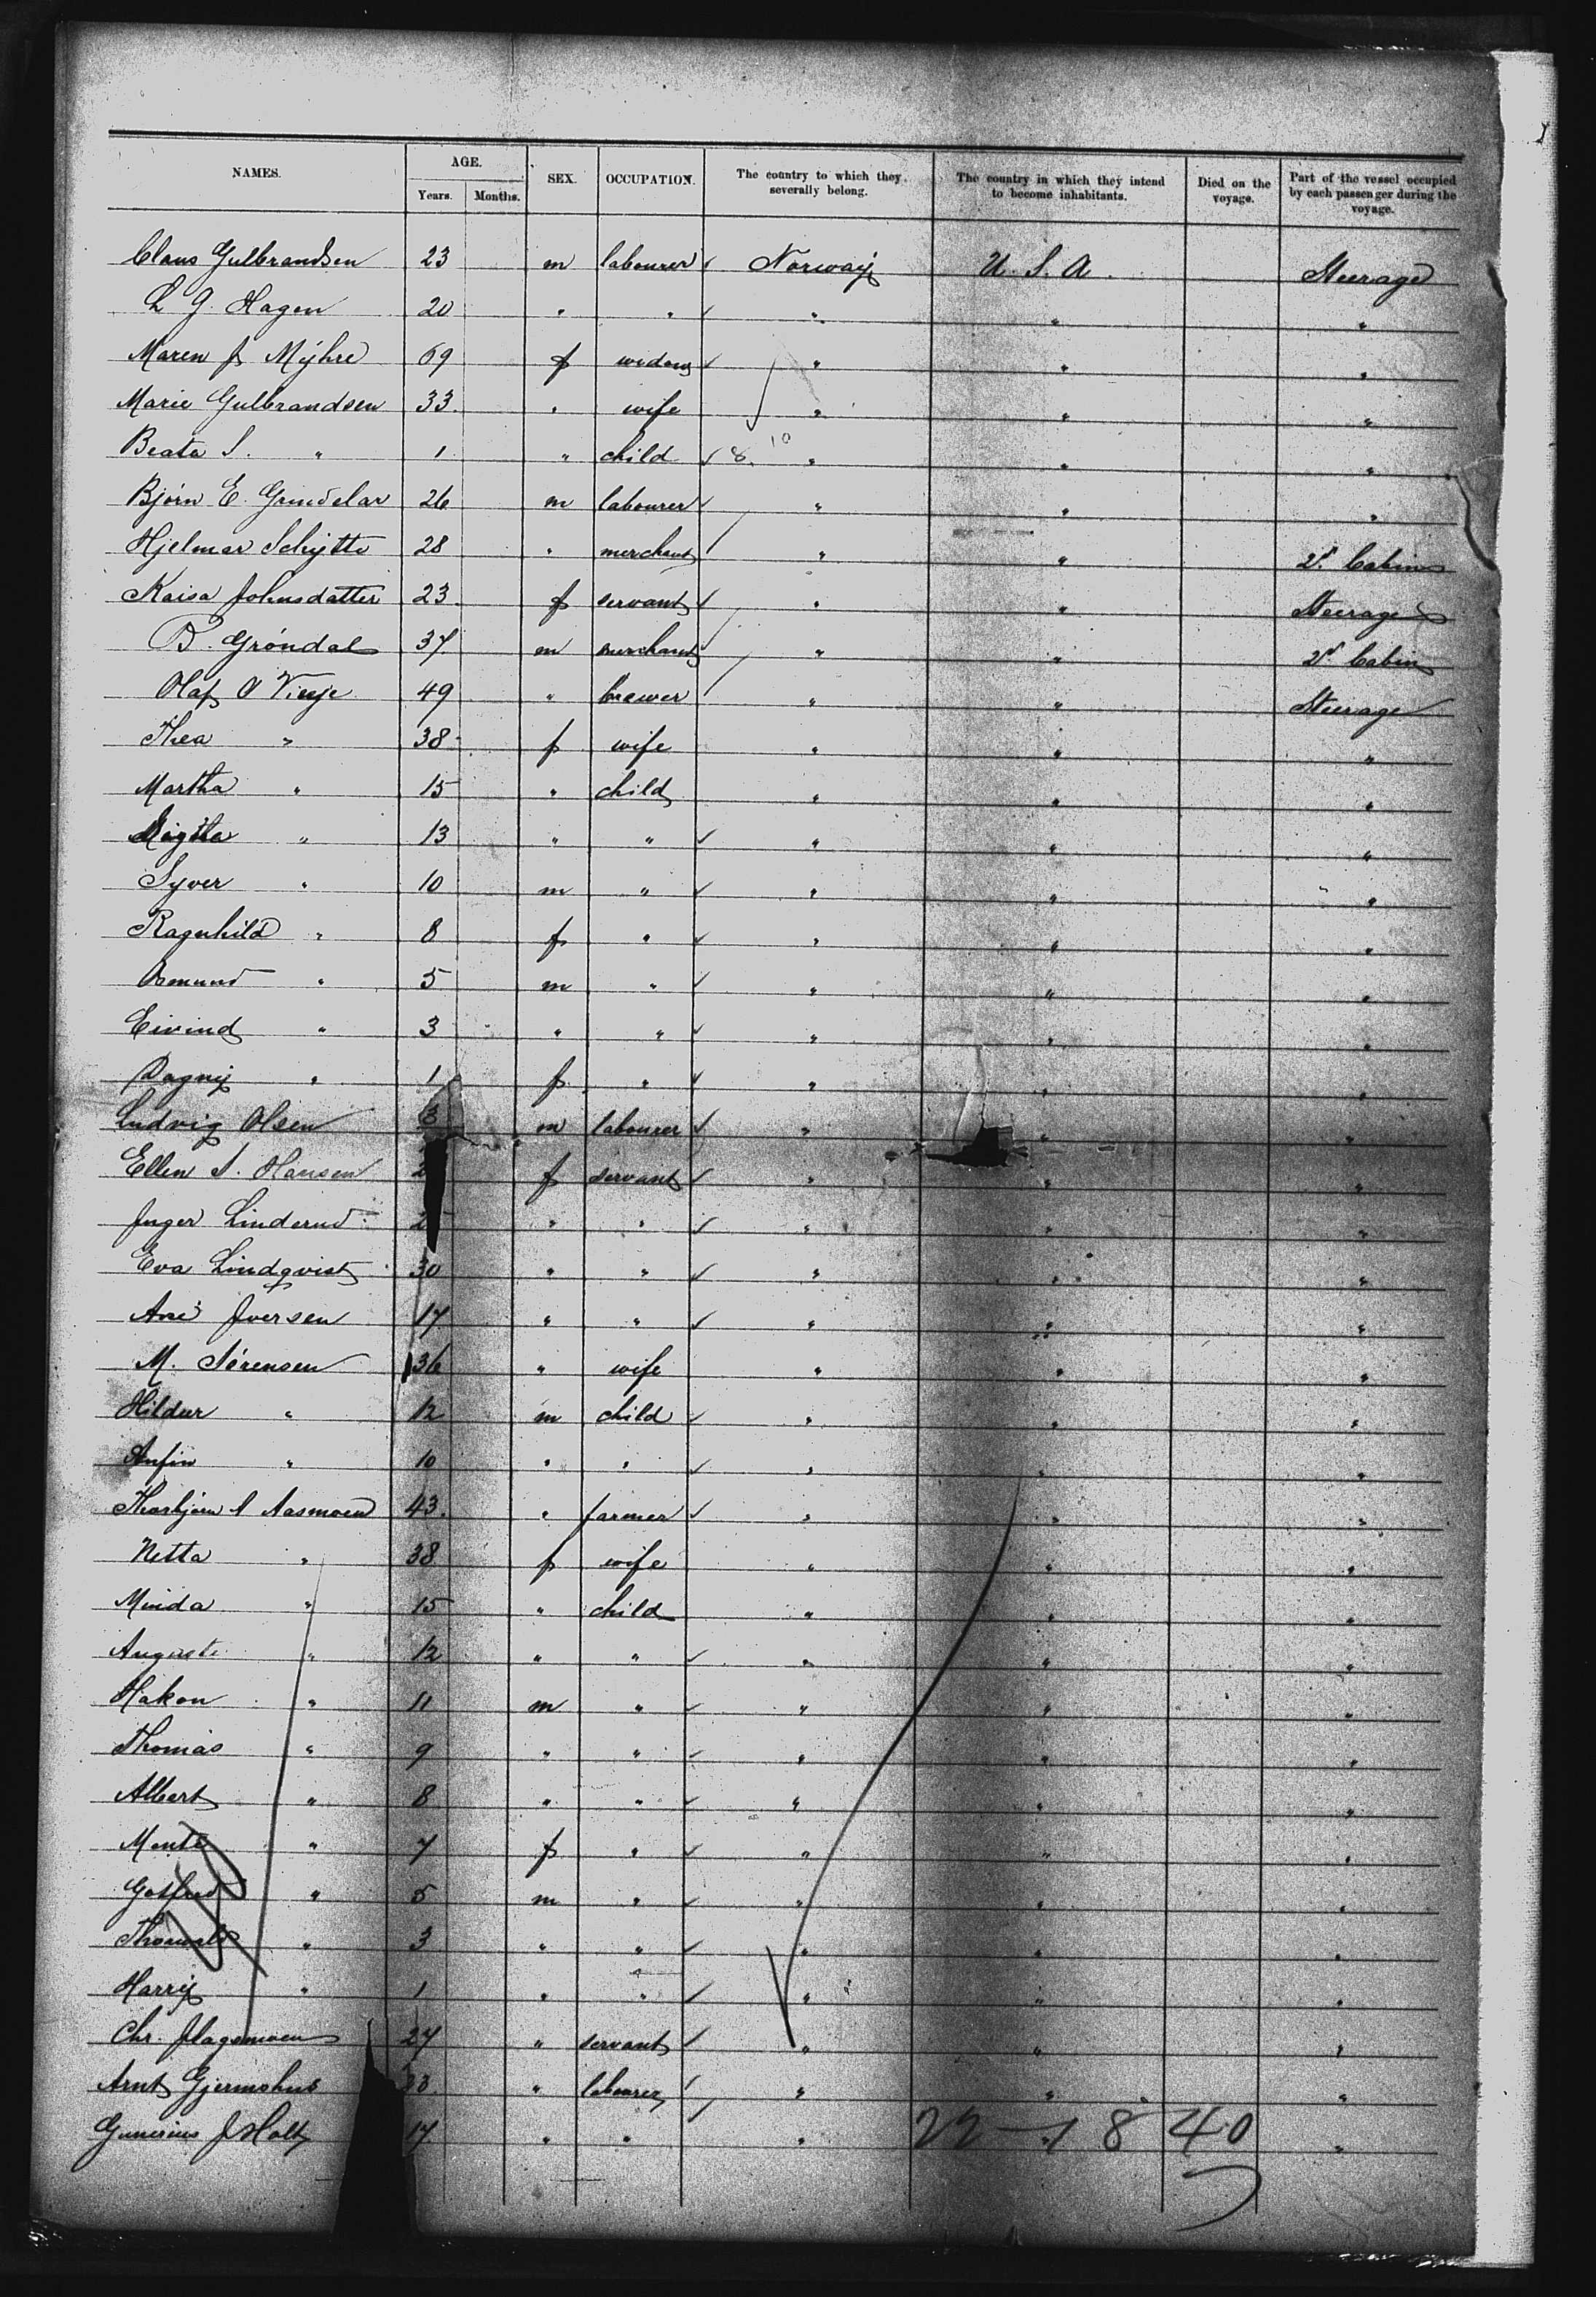 NAMES. AGE. SEX. OCCUPATION. The country to which they severally belong. The country in which they intend to become inhabitants. Died on the voyage. Part of the vessel occupied by each passenger during the voyage.
Years. Months.
Claus Gulbrandsen 23 m labourer Norway U. S. A. Steerage
L G. Hagen 20 " " " " "
Maren J Myhre 69 f widow " " "
Marie Gulbrandsen 33 " wife " " "
Beata S. " 1 " child 8. 10 " " "
Bjórn E. Grindelar 26 m labourer " " "
Hjelmar Schytte 28 " merchant " " 2d. Cabin
Kaisa Johnsdatter 23 f servant " " Steerage
B. Gróndal 37 m merchant " " 2d. Cabin
Olaf O Vinje 49 " brewer " " Steerage
Thea " 38 f wife " " "
Martha " 15 " child " " "
" 13 " " " " "
Syver " 10 m " " " "
Ragnhild " 8 f " " " "
Asmund " 5 m " " " "
Eivind " 3 " " " " "
Dagny " 1 f " " " "
Ludvig Olsen m labourer " " "
Ellen S. Hansen 2 f servant " " "
Inger Linderud 2 " " " " "
Eva Lindqvist 30 " " " " "
Ane Iversen 17 " " " " "
M. Sørensen 36 " wife " " "
Hildur " 12 m child " " "
Anfin " 10 " " " " "
Thorbjørn A Aasmoen 43. " farmer " " "
Netta " 38 f wife " " "
Minda " 15 " child " " "
Auguste " 12 " " " " "
Hakon " 11 m " " " "
Thomas " 9 " " " " "
Albert " 8 " " " " "
" 7 f " " " "
" 5 m " " " "
" 3 " " " " "
Harry " 1 " " " " "
Chr. 27 " servant " " "
Arnt Gjermshus 23. " labourer " " "
Gunerius J Holt 17 " " " " "
22 – 18 40